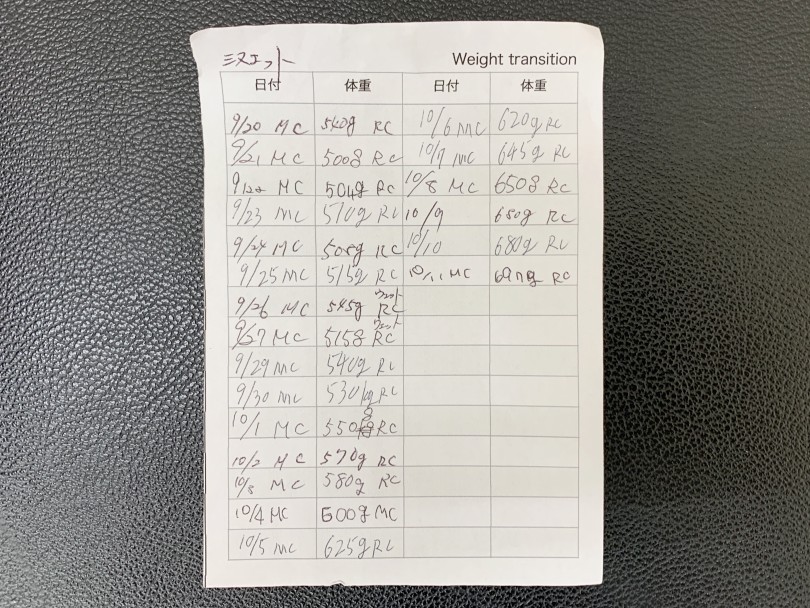 ミヌエット
Weight transition
日付 体重 日付 体重
9/20 MC 540g RC 10/6 MC 620g RC
9/21 MC 500g RC 10/7 MC 645g RC
9/22 MC 504g RC 10/8 MC 650g RC
9/23 MC 510g RC 10/9 680g RC
9/24 MC 505g RC 10/10 680g RC
9/25 MC 515g RC 10/11 MC RC
9/26 MC 545g ウェット RC
9/27 MC 515g ウェット RC
9/29 MC 540g RC
9/30 MC 530 RC
10/1 MC 550 g RC
10/2 MC 570g RC
MC 580g RC
10/4 MC 600g MC
10/5 MC 625g RC